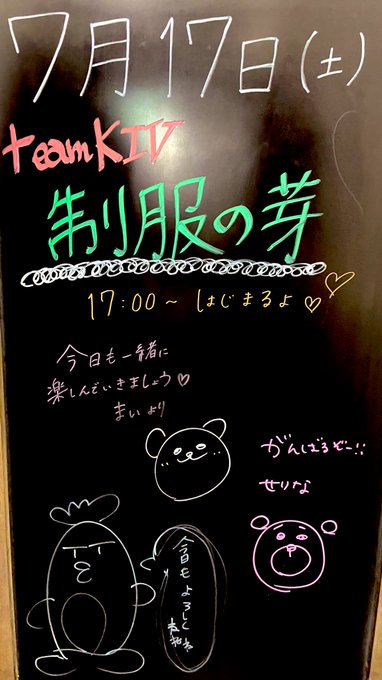 7月17日(土)
teamKIV
制服の芽
17:00～ はじまるよ♡♡
今日も一緒に
楽しんでいきましょう♡
まいより
がんばるぞー!!
せりな
今日もよろしくね